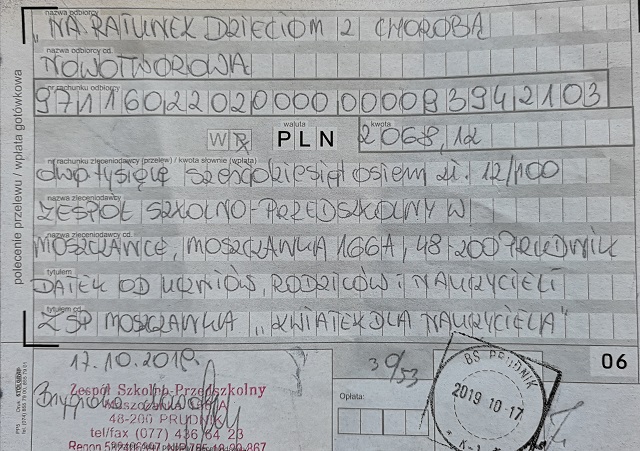 nazwa odbiorcy
„NA RATUNEK DZIECIOM Z CHOROBĄ
nazwa odbiorcy cd.
NOWOTWOROWĄ
nr rachunku odbiorcy
97116022020000000083942103
waluta
kwota
W P PLN 2068,12
nr rachunku zleceniodawcy (przelew) / kwota słownie (wpłata)
dwa tysiące sześćdziesiąt osiem zł. 12/100
nazwa zleceniodawcy
ZESPÓŁ SZKOLNO-PRZEDSZKOLNY W
nazwa zleceniodawcy cd.
MOSZCZANCE, MOSZCZANKA 166A, 48-200 PRUDNIK
tytułem
DATEK OD UCZNIÓW, RODZICÓW I NAUCZYCIELI
tytułem cd.
ZSP MOSZCZANKA „KWIATEK DLA NAUCZYCIELA"
polecenie przelewu / wpłata gotówkowa
06
17.10.2019.
39/53
Opłata:
Zespół Szkolno-Przedszkolny
48-200 PRUDNIK
tel/fax (077) 436 64 23
BS PRUDNIK
2019 10-17